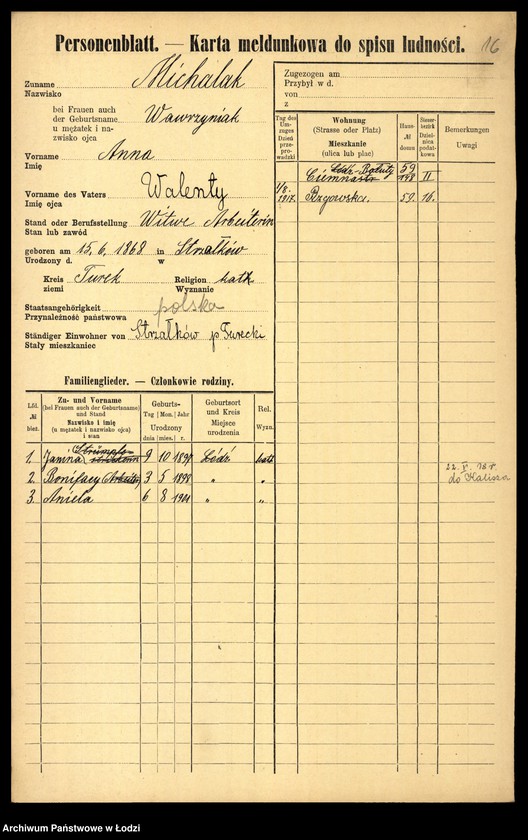 Personenblatt. — Karta meldunkowa do spisu ludności.
16
Zuname Michalak
Nazwisko
bei Frauen auch
der Geburtsname Wawrzyniak
u mężatek i na-
zwisko ojca
Vorname Anna
Imię
Vorname des Vaters Walenty
Imię ojca
Stand oder Berufsstellung Witwe Arbeiterin
Stan lub zawód
geboren am 15. 6. 1868 in Strzałków
Urodzony d. w
Kreis Turek Religion kath
ziemi Wyznanie
Staatsangehörigkeit polska
Przynależność państwowa
Ständiger Einwohner von Strzałków p Turecki
Stały mieszkaniec
Zugezogen am
Przybył w d.
von
z
Tag des Um-zuges Dzień przepro-wadzki
Wohnung
(Strasse oder Platz)
Mieszkanie
(ulica lub plac)
Haus- № domu
Steuer-bezirk Dzielnica podatkowa
Bemerkungen
Uwagi
Łódź-Bałuty 59
Ciemna 148 II
1/8. 1917. Brzgowska. 59. 10.
Familienglieder. — Członkowie rodziny.
Lfd. № bież.
Zu- und Vorname
(bei Frauen auch der Geburtsname)
und Stand
Nazwisko i imię
(u mężatek i nazwisko ojca)
i stan
Geburts-
Tag Mon. Jahr
Urodzony
dnia mies. r.
Geburtsort
und Kreis
Miejsce
urodzenia
Rel.
Wyzn.
1. Janina 9 10 1897 Łódź kath
2. Bonifacy (Arbeiter) 3 5 1898 " "
22. X. 18 r.
do Kalisza
3. Aniela 6 8 1901 " "
Archiwum Państwowe w Łodzi